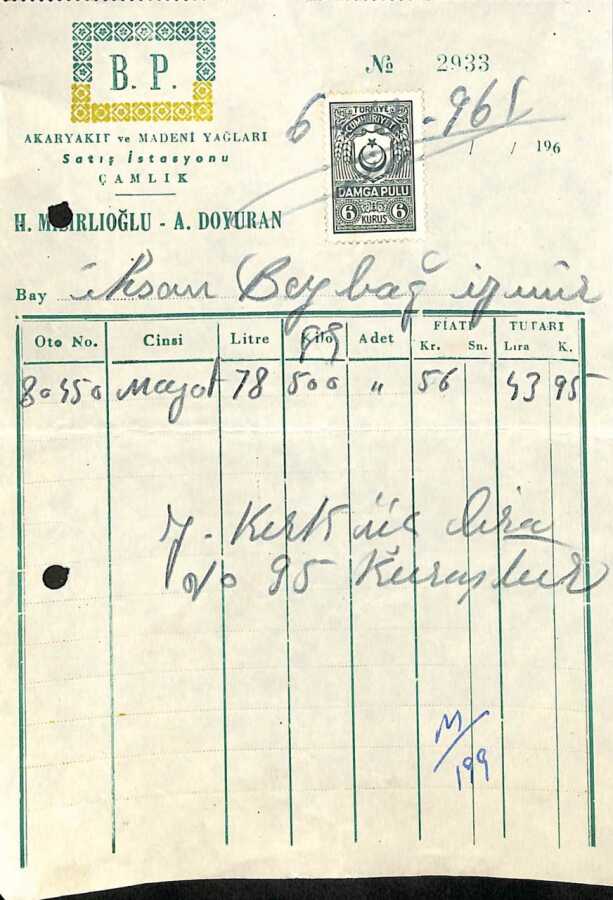 B. P.
№ 2933
AKARYAKIT ve MADENİ YAĞLARI
Satış İstasyonu
ÇAMLIK
TÜRKİYE
CUMHURİYETİ
DAMGA PULU
6 KURUŞ 6
6 965
/ / 196
H. MISIRLIOĞLU - A. DOYURAN
Bay iksan Beybağ izmir
Oto No. Cinsi Litre Kilo Adet FİATI Kr. Sn. TUTARI Lira K.
80450 Mazot 78 500 " 56 43 95
y. Kırk üç lira
95 Kuruştur
M/199